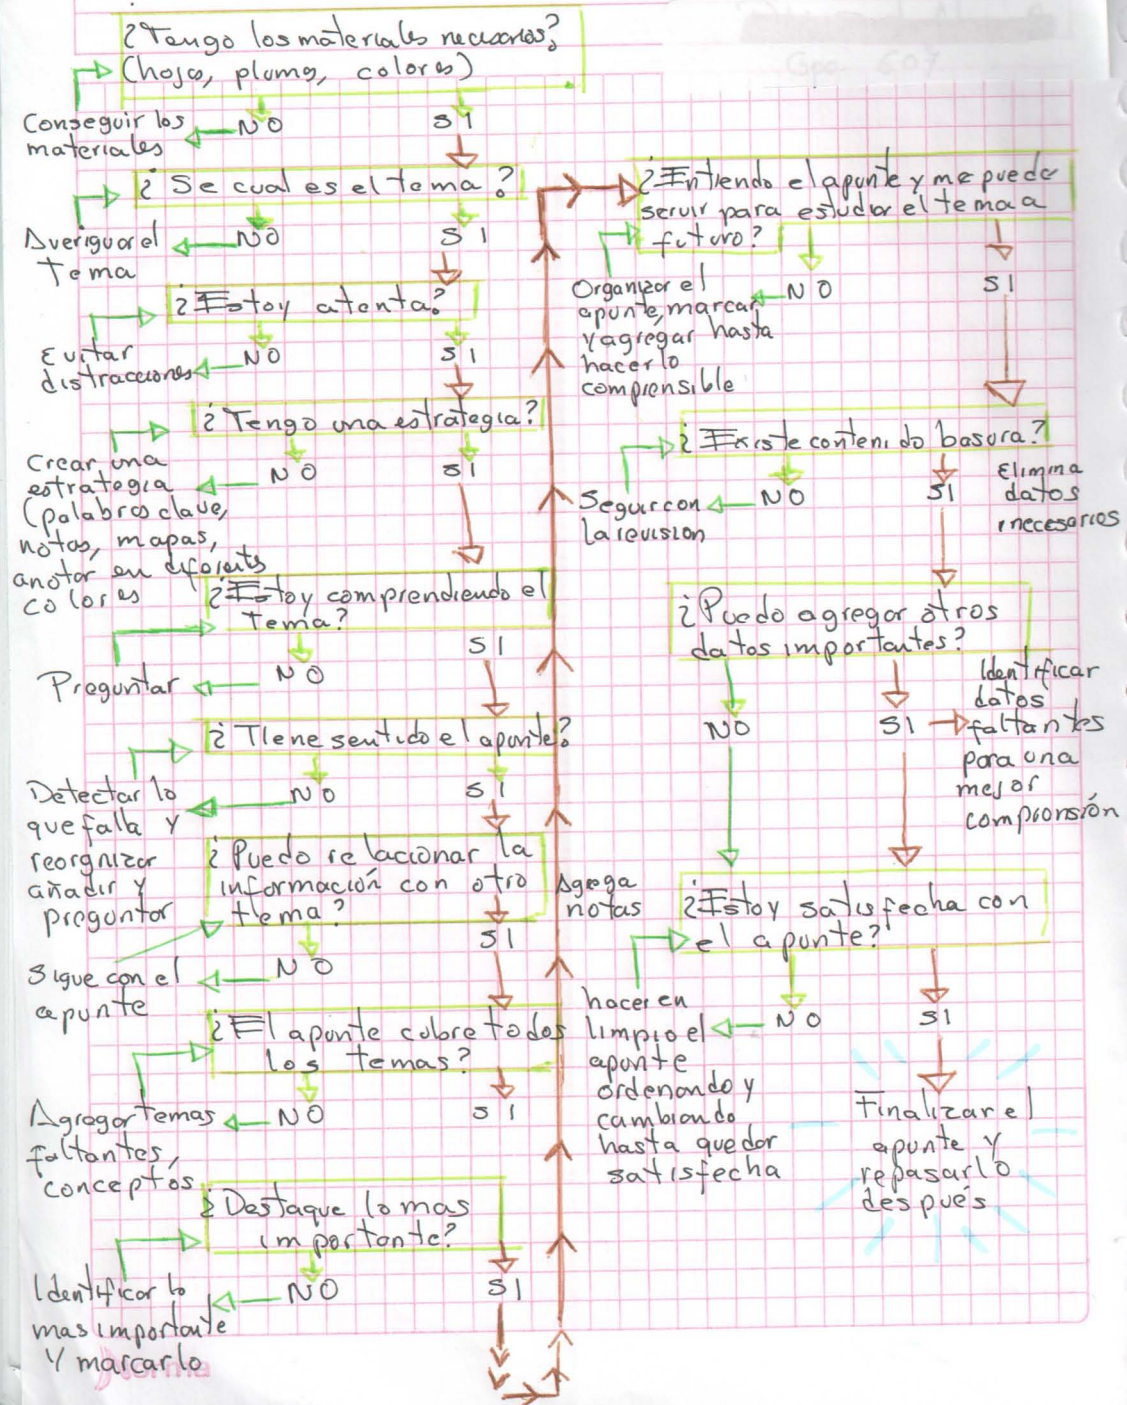 ¿Tengo los materiales necesarios?
(hojas, plumas, colores)
Conseguir los
materiales
NO
SI
¿Se cual es el tema?
Averiguar el
tema
NO
SI
¿Estoy atenta?
Evitar
distracciones
NO
SI
¿Tengo una estrategia?
Crear una
estrategia
(palabras clave,
notas, mapas,
anotar en diferents
colores
NO
SI
¿Estoy comprendiendo el
tema?
Preguntar
NO
SI
¿Tiene sentido el apunte?
Detectar lo
que falla y
reorgnizar
añadir y
preguntar
NO
SI
¿Puedo relacionar la
información con otro
tema?
Sigue con el
apunte
NO
SI
Agrega
notas
¿El apunte cubre todos
los temas?
Agregar temas
faltantes,
conceptos
NO
SI
¿Destaque lo mas
importante?
Identificar lo
mas importante
y marcarlo
NO
SI
¿Entiendo el apunte y me puede
servir para estudiar el tema a
futuro?
Organizar el
apunte, marcar
y agregar hasta
hacerlo
comprensible
NO
SI
¿Existe contenido basura?
Seguir con
la revision
NO
SI
Elimina
datos
inecesarios
¿Puedo agregar otros
datos importantes?
NO
SI
Identificar
datos
faltantes
para una
mejor
comprensión
¿Estoy satisfecha con
el apunte?
hacer en
limpio el
apunte
ordenando y
cambiando
hasta quedar
satisfecha
NO
SI
Finalizar el
apunte y
repasarlo
después